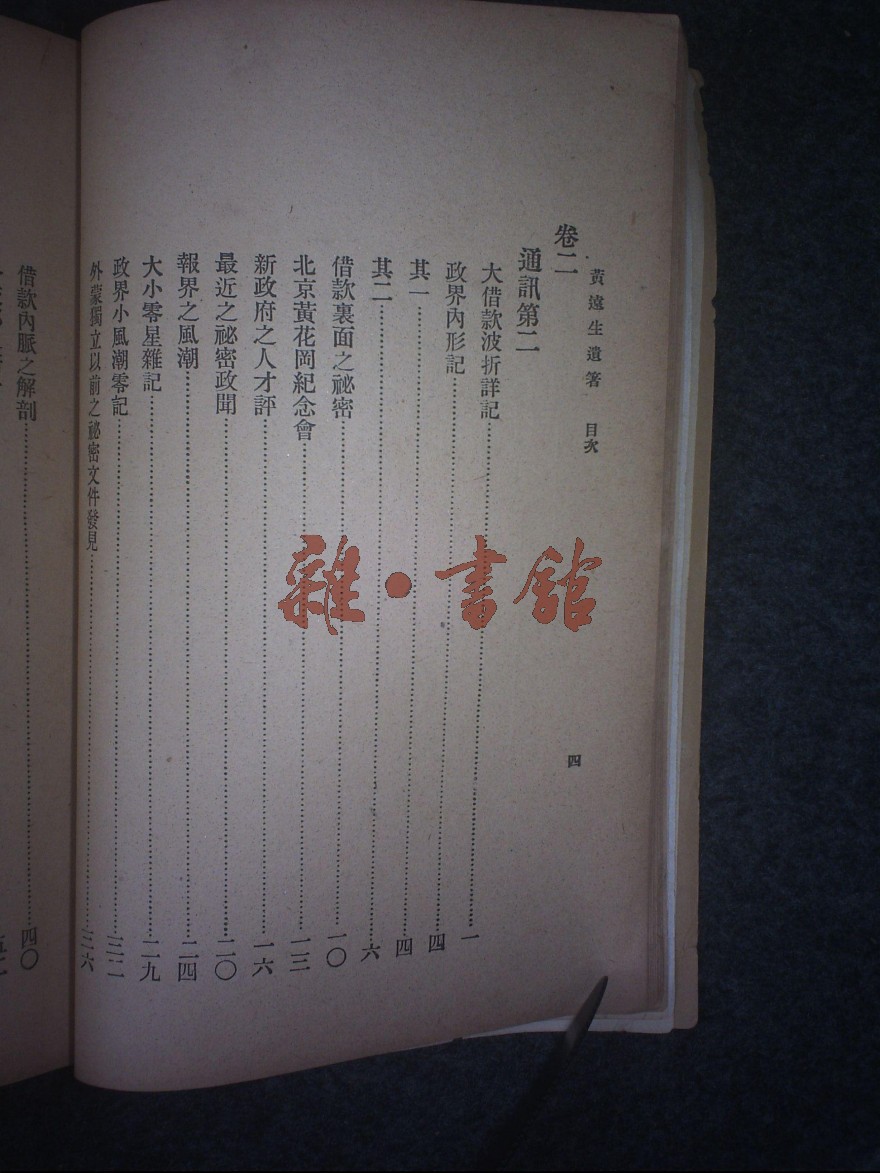 黃遠生遺箸　目次
四
卷二
通訊第二
大借款波折詳記…………一
政界內形記…………四
其一…………四
其二…………六
借款裏面之祕密…………一〇
北京黃花岡紀念會…………一三
新政府之人才評…………一六
最近之祕密政聞…………二〇
報界之風潮…………二四
大小零星雜記…………二九
政界小風潮零記…………三二
外蒙獨立以前之祕密文件發見…………三六
借款內脈之解剖…………四〇
雜•書館